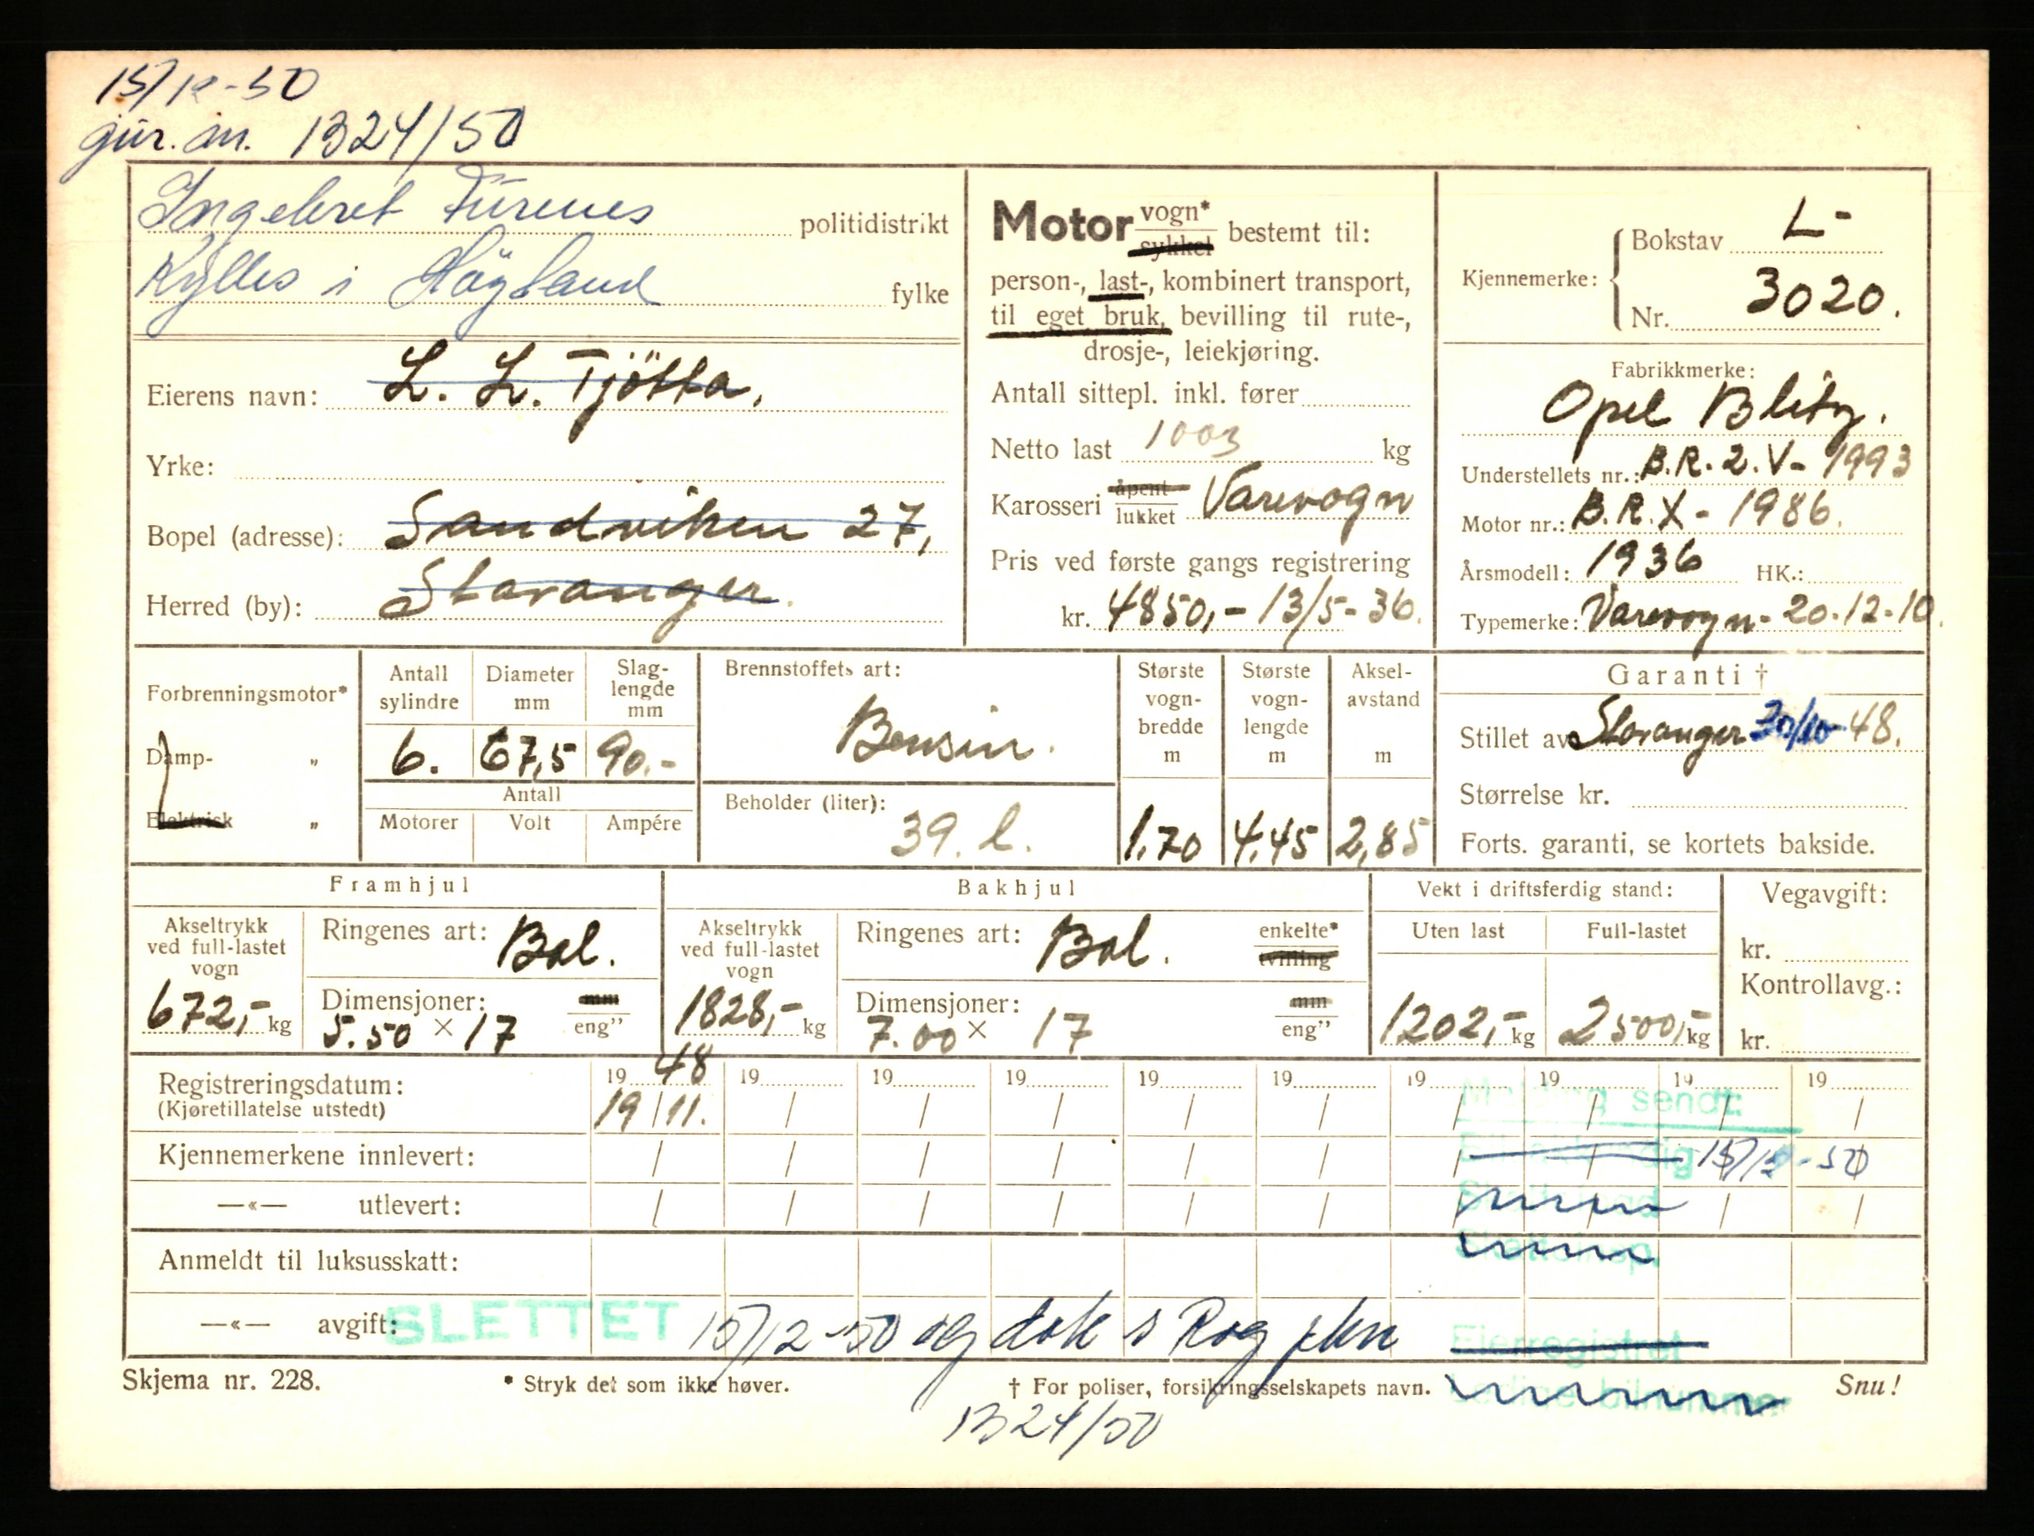 15/12-50
gjir. an. 1324/50
Ingebret Furenes politidistrikt
Kylles i Høyland fylke
Eierens navn: L. L. Tjötta.
Yrke:
Bopel (adresse): Sandviken 27,
Herred (by): Stavanger.
Motor vogn* sykkel bestemt til:
person-, last-, kombinert transport,
til eget bruk, bevilling til rute-,
drosje-, leiekjøring.
Antall sittepl. inkl. fører
Netto last 1003 kg
Karosseri åpent lukket Varevogn
Pris ved første gangs registrering
kr. 4850,- 13/5-36.
Kjennemerke: Bokstav L-
Nr. 3020.
Fabrikkmerke:
Opel Blitz.
Understellets nr.: B.R.2.V- 1993
Motor nr.: B.R.X- 1986.
Årsmodell: 1936 HK.:
Typemerke: Varevogn- 20-12-10.
Forbrenningsmotor*
Damp- „
Elektrisk „
Antall sylindre 6.
Diameter mm 67,5
Slag-lengde mm 90.-
Antall
Motorer Volt Ampére
Brennstoffets art:
Bensin.
Beholder (liter):
39. l.
Største vogn-bredde m 1,70
Største vogn-lengde m 4.45
Aksel-avstand m 2,85
Garanti †
Stillet av Stavanger 30/10-48.
Størrelse kr.
Forts. garanti, se kortets bakside.
Framhjul
Akseltrykk ved full-lastet vogn 672,- kg
Ringenes art: Bal.
Dimensjoner: mm
5.50 × 17 eng”
Bakhjul
Akseltrykk ved full-lastet vogn 1828,- kg
Ringenes art: Bal. enkelte* tvilling
Dimensjoner: mm
7.00 × 17 eng”
Vekt i driftsferdig stand:
Uten last Full-lastet
1202,- kg 2500,- kg
Vegavgift:
kr.
Kontrollavg.:
kr.
Registreringsdatum: 19 48 19 19 19 19 19 19 19 19 19
(Kjøretillatelse utstedt) 19/11. / / / / / / / / /
Melding sendt:
Kjennemerkene innlevert: / / / / / / / / / /
15/12-50
—«— utlevert: / / / / / / / / / /
Anmeldt til luksusskatt:
—«— avgift:
SLETTET 15/12-50 og dok s Rog
Eierregistret
Skjema nr. 228. * Stryk det som ikke høver. † For poliser, forsikringsselskapets navn. Snu!
1324/50